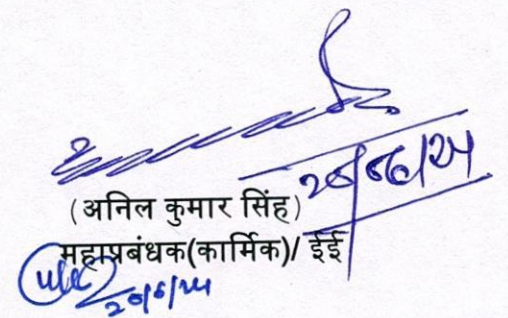 20/06/24
(अनिल कुमार सिंह)
महाप्रबंधक(कार्मिक)/ ईई
20/6/24